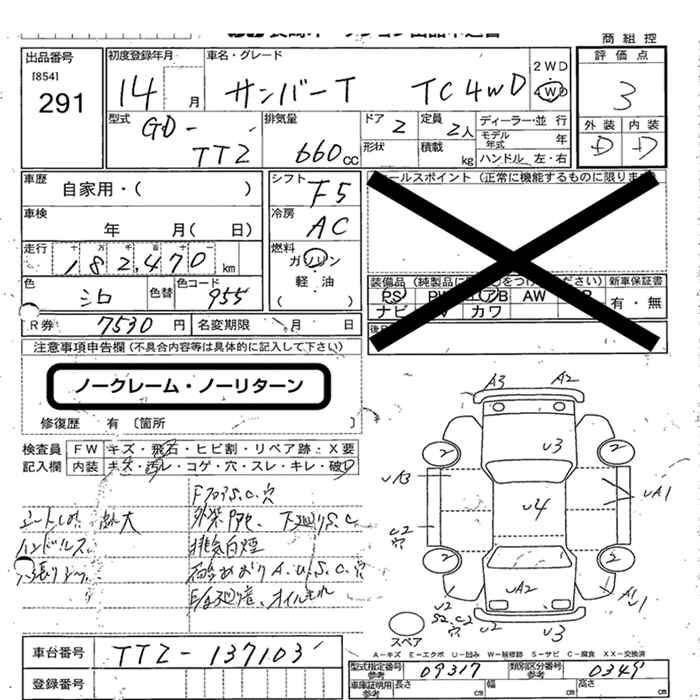 商組控
出品番号
[854]
291
初度登録年月
14 月
車名・グレード
サンバーT TC4WD
2WD
4WD
評価点
3
外装 内装
D D
型式
GD-
TT2
排気量
660 CC
ドア 2
形状
定員 2人
積載 kg
ディーラー・並行
モデル年式 年
ハンドル 左・右
車歴
自家用・( )
車検
年 月( 日)
走行
十 万 千 百 十
182,470 km
シフト F5
冷房 AC
燃料
ガソリン
( 軽油 )
色
シロ
色替
色コード
955
R券 7530 円
名変期限 月 日
セールスポイント (正常に機能するものに限ります)
装備品
新車保証書
PS
AW
有・無
ナビ
カワ
注意事項申告欄 (不具合内容等は具体的に記入して下さい)
ノークレーム・ノーリターン
修復歴 有 〔箇所 〕
検査員
記入欄
FW キズ・飛石・ヒビ割・リペア跡・X要
内装 キズ・汚レ・コゲ・穴・スレ・キレ・破レ
FフロアS.C.穴
下廻リS.C
ハンドルス
排気白煙
A.U.S.C.穴
オイルモレ
A3 A2
U3
2 2
UA3
UA1
U4
C2
穴
2 2
UA2
U2
S2.C2
穴
U2
U3
スペア
A-キズ E-エクボ U-凹み W-補修跡 S-サビ C-腐食 XX-交換済
車台番号 TT2-137103
登録番号
型式指定番号
参考
09317
類別区分番号
参考
0349
車庫証明用
参考
長さ cm
幅 cm
高さ cm